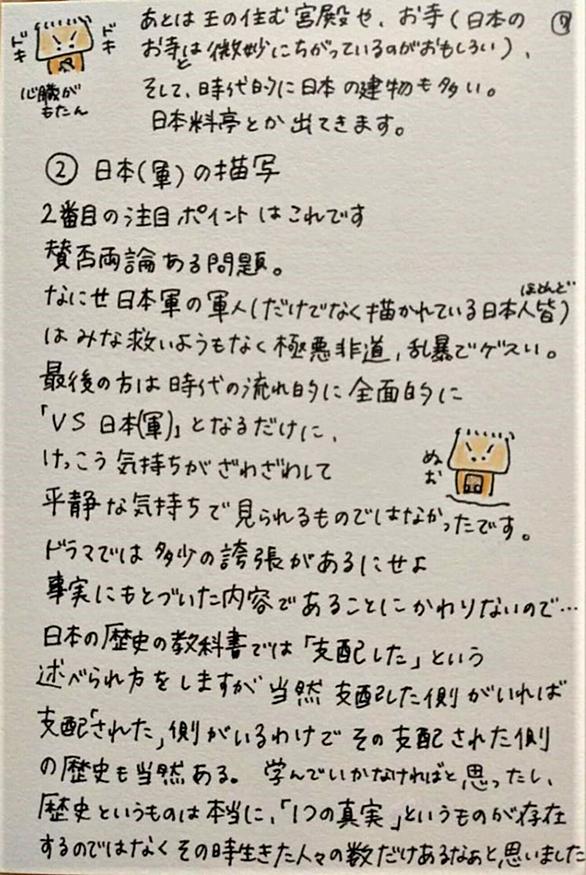 あとは王の住む宮殿や、お寺(日本の
お寺と微妙にちがっているのがおもしろい)、
そして、時代的に日本の建物も多い。
日本料亭とか出てきます。
ドキ
ドキ
心臓が
もたん
② 日本(軍)の描写
2番目の注目ポイントはこれです
賛否両論ある問題。
なにせ日本軍の軍人(だけでなく描かれている日本人ほとんど皆)
はみな救いようもなく極悪非道,乱暴でゲスい。
最後の方は時代の流れ的に全面的に
「VS 日本(軍)」となるだけに、
けっこう気持ちがざわざわして
平静な気持ちで見られるものではなかったです。
ぬお
ドラマでは多少の誇張があるにせよ
事実にもとづいた内容であることにかわりないので…
日本の歴史の教科書では「支配した」という
述べられ方をしますが当然支配した側がいれば
支配「された」側がいるわけでその支配された側
の歴史も当然ある。学んでいかなければと思ったし、
歴史というものは本当に、「1つの真実」というものが存在
するのではなくその時生きた人々の数だけあるなぁと思いました